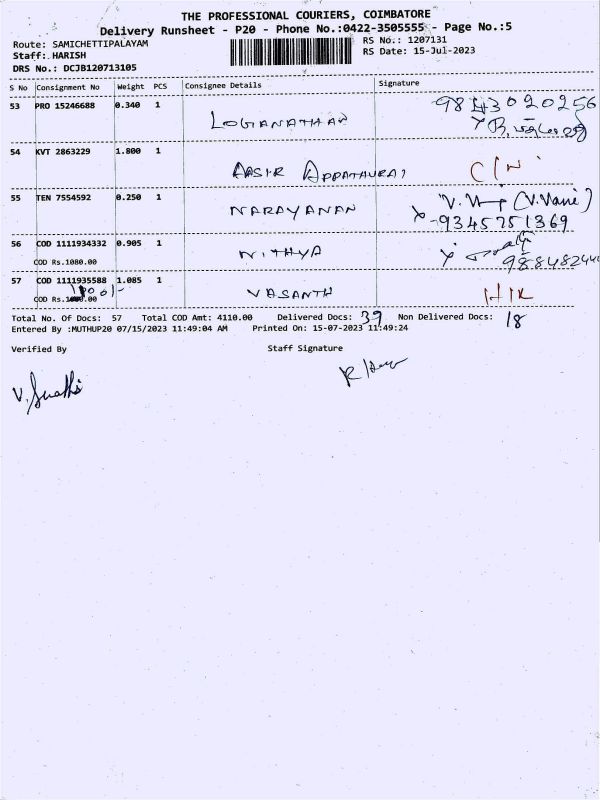 THE PROFESSIONAL COURIERS, COIMBATORE
Delivery Runsheet - P20 - Phone No.:0422-3505555 - Page No.:5
Route: SAMICHETTIPALAYAM
RS No.: 1207131
Staff: HARISH
RS Date: 15-Jul-2023
DRS No.: DCJB120713105
S No Consignment No Weight PCS Consignee Details Signature
53 PRO 15246688 0.340 1 LOGIANATHAN 9843020256
54 KVT 2863229 1.800 1 AASIR APPATHURAI C/N
55 TEN 7554592 0.250 1 NARAYANAN (V.Vani)
9345751369
56 COD 1111934332 0.905 1 NITHYA
COD Rs.1080.00
57 COD 1111935588 1.085 1 VASANTH
COD Rs.
Total No. Of Docs: 57 Total COD Amt: 4110.00 Delivered Docs: 39 Non Delivered Docs: 18
Entered By :MUTHUP20 07/15/2023 11:49:04 AM Printed On: 15-07-2023 11:49:24
Verified By Staff Signature